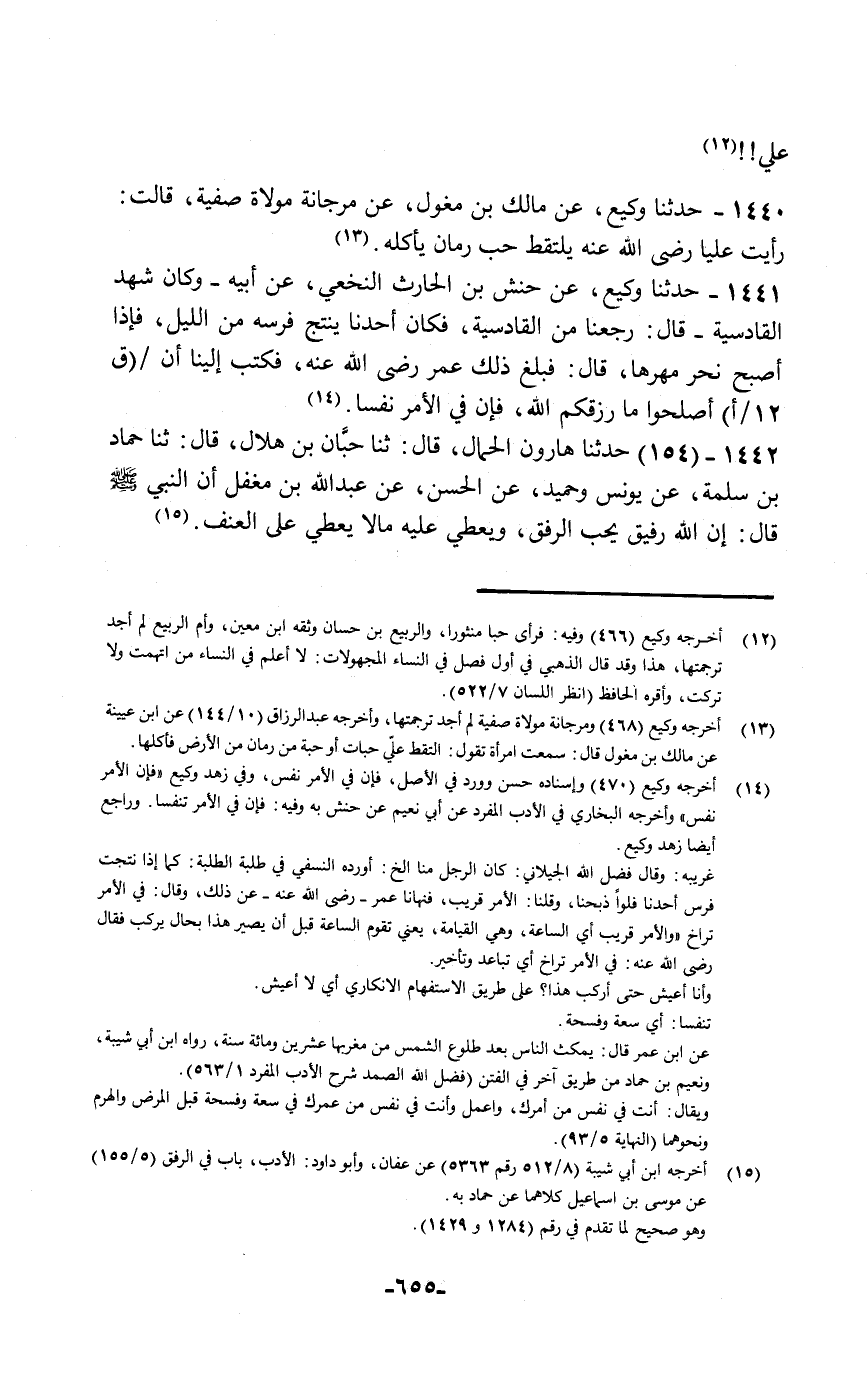 علي!!(١٢)
١٤٤٠ ـ حدثنا وكيع، عن مالك بن مغول، عن مرجانة مولاة صفية، قالت:
رأيت عليا رضى الله عنه يلتقط حب رمان يأكله.(١٣)
١٤٤١ ـ حدثنا وكيع، عن حنش بن الحارث النخعي، عن أبيه ـ وكان شهد
القادسية ـ قال: رجعنا من القادسية، فكان أحدنا ينتج فرسه من الليل، فإذا
أصبح نحر مهرها، قال: فبلغ ذلك عمر رضى الله عنه، فكتب إلينا أن /(ق
١٢/أ) أصلحوا ما رزقكم الله، فإن في الأمر نفسا.(١٤)
١٤٤٢ ـ (١٥٤) حدثنا هارون الحمال، قال: ثنا حبَّان بن هلال، قال: ثنا حماد
بن سلمة، عن يونس وحميد، عن الحسن، عن عبدالله بن مغفل أن النبي ﷺ
قال: إن الله رفيق يحب الرفق، ويعطي عليه مالا يعطي على العنف.(١٥)
(١٢) أخرجه وكيع (٤٦٦) وفيه: فرأى حبا منثورا، والربيع بن حسان وثقه ابن معين، وأم الربيع لم أجد
ترجمتها، هذا وقد قال الذهبي في أول فصل في النساء المجهولات: لا أعلم في النساء من اتهمت ولا
تركت، وأقره الحافظ (انظر اللسان ٥٢٢/٧).
(١٣) أخرجه وكيع (٤٦٨) ومرجانة مولاة صفية لم أجد ترجمتها، وأخرجه عبدالرزاق (١٤٤/١٠) عن ابن عيينة
عن مالك بن مغول قال: سمعت امرأة تقول: التقط عليّ حبات أو حبة من رمان من الأرض فأكلها.
(١٤) أخرجه وكيع (٤٧٠) وإسناده حسن وورد في الأصل، فإن في الأمر نفس، وفي زهد وكيع «فإن الأمر
نفس» وأخرجه البخاري في الأدب المفرد عن أبي نعيم عن حنش به وفيه: فإن في الأمر تنفسا. وراجع
أيضا زهد وكيع.
غريبه: وقال فضل الله الجيلاني: كان الرجل منا الخ: أورده النسفي في طلبة الطلبة: كما إذا نتجت
فرس أحدنا فلواً ذبحنا، وقلنا: الأمر قريب، فنهانا عمر ـ رضى الله عنه ـ عن ذلك، وقال: في الأمر
تراخ «والأمر قريب أي الساعة، وهي القيامة، يعني تقوم الساعة قبل أن يصير هذا بحال يركب فقال
رضى الله عنه: في الأمر تراخ أي تباعد وتأخير.
وأنا أعيش حتى أركب هذا؟ على طريق الاستفهام الانكاري أي لا أعيش.
تنفسا: أي سعة وفسحة.
عن ابن عمر قال: يمكث الناس بعد طلوع الشمس من مغربها عشرين ومائة سنة، رواه ابن أبي شيبة،
ونعيم بن حماد من طريق آخر في الفتن (فضل الله الصمد شرح الأدب المفرد ٥٦٣/١).
ويقال: أنت في نفس من أمرك، واعمل وأنت في نفس من عمرك في سعة وفسحة قبل المرض والهرم
ونحوهما (النهاية ٩٣/٥).
(١٥) أخرجه ابن أبي شيبة (٥١٢/٨ رقم ٥٣٦٣) عن عفان، وأبو داود: الأدب، باب في الرفق (١٥٥/٥)
عن موسى بن اسماعيل كلاهما عن حماد به.
وهو صحيح لما تقدم في رقم (١٢٨٤ و ١٤٢٩).
ـ٦٥٥ـ